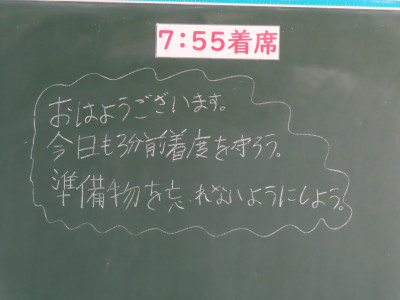 7:55着席
おはようございます。
今日も3分前着度を守ろう。
準備物を忘れないようにしよう。